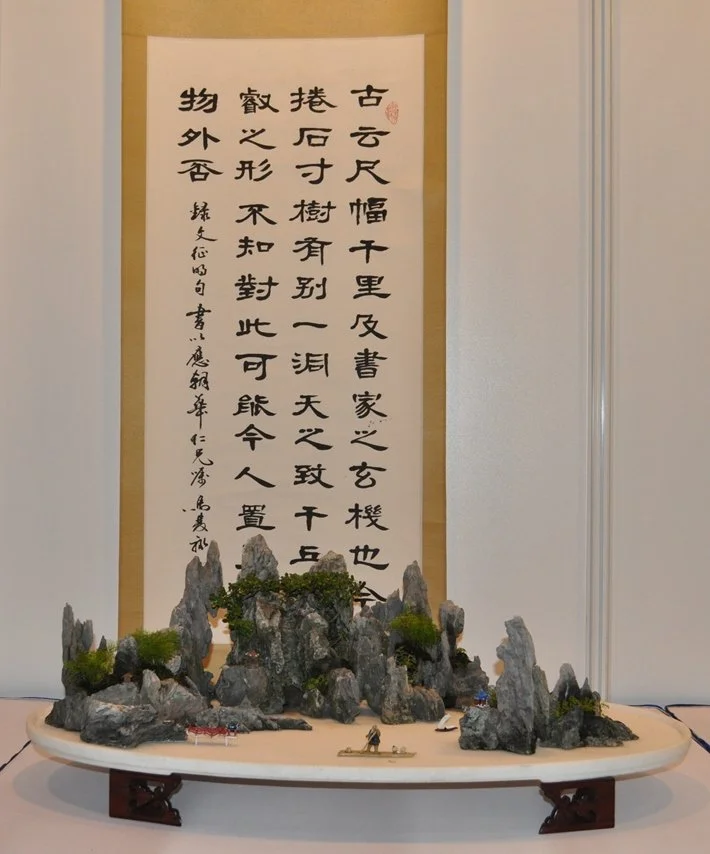 古云尺幅千里及書家之玄機也今
捲石寸樹有别一洞天之致千丘
叡之形不知對此可能令人置
物外否
録文征明句書以應華仁兄囑馬